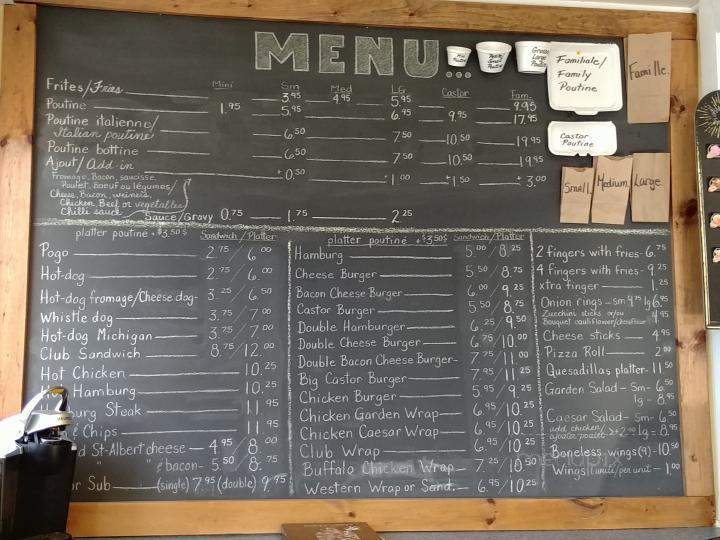 MENU...
Mini Poutine
Large Poutine
Familiale/
Family
Poutine
Famille
Castor
Poutine
Small Medium Large
Mini Sm Med LG Castor Fam.
Frites/Fries 3.95 4.95 5.95 9.95
Poutine 1.95 5.95 6.95 9.95 17.95
Poutine italienne/
Italian poutine 6.50 7.50 10.50 19.95
Poutine bottine 6.50 7.50 10.50 19.95
Ajout/Add-in +0.50 +1.00 +1.50 +3.00
Fromage, Bacon, saucisse,
Poulet, Boeuf ou légumes/
Cheese, Bacon, weiners,
Chicken, Beef or vegetables
Chilli sauce
Sauce/Gravy 0.75 1.75 2.25
platter poutine +$3.50$ Sandwich/Platter
Pogo 2.75/6.00
Hot-dog 2.75/6.00
Hot-dog fromage/Cheese dog- 3.25/6.50
Whistle dog 3.75/7.00
Hot-dog Michigan 3.75/7.00
Club Sandwich 8.75/12.00
Hot Chicken 10.25
Hamburg 10.25
burg Steak 11.95
& Chips 11.95
d St-Albert cheese - 4.95/8.00
" " & bacon- 5.50/8.75
or Sub (single) 7.95 (double) 9.95
platter poutine +$3.50$ Sandwich/Platter
Hamburg 5.00/8.25
Cheese Burger 5.50/8.75
Bacon Cheese Burger 6.00/9.25
Castor Burger 5.50/8.75
Double Hamburger 6.25/9.50
Double Cheese Burger 6.75/10.00
Double Bacon Cheese Burger- 7.75/11.00
Big Castor Burger 7.95/11.25
Chicken Burger 5.95/9.25
Chicken Garden Wrap 6.95/10.25
Chicken Caesar Wrap 6.95/10.25
Club Wrap 6.95/10.25
Buffalo Chicken Wrap 7.25/10.50
Western Wrap or Sand. 6.95/10.25
2 fingers with fries- 6.75
4 fingers with fries- 9.25
xtra finger 1.25
Onion rings - sm 4.75 lg 6.95
Zucchini sticks or/ou
Bouquet cauliflower/choufleur 4.95
Cheese sticks 4.95
Pizza Roll 2.00
Quesadillas platter- 11.50
Garden Salad - Sm- 6.50
lg - 8.95
Caesar Salad- Sm- 6.50
add chicken/
ajouter poulet > +2.00 lg- 8.95
Boneless wings(9)- 10.50
Wings (1 unité/per unit - 1.00